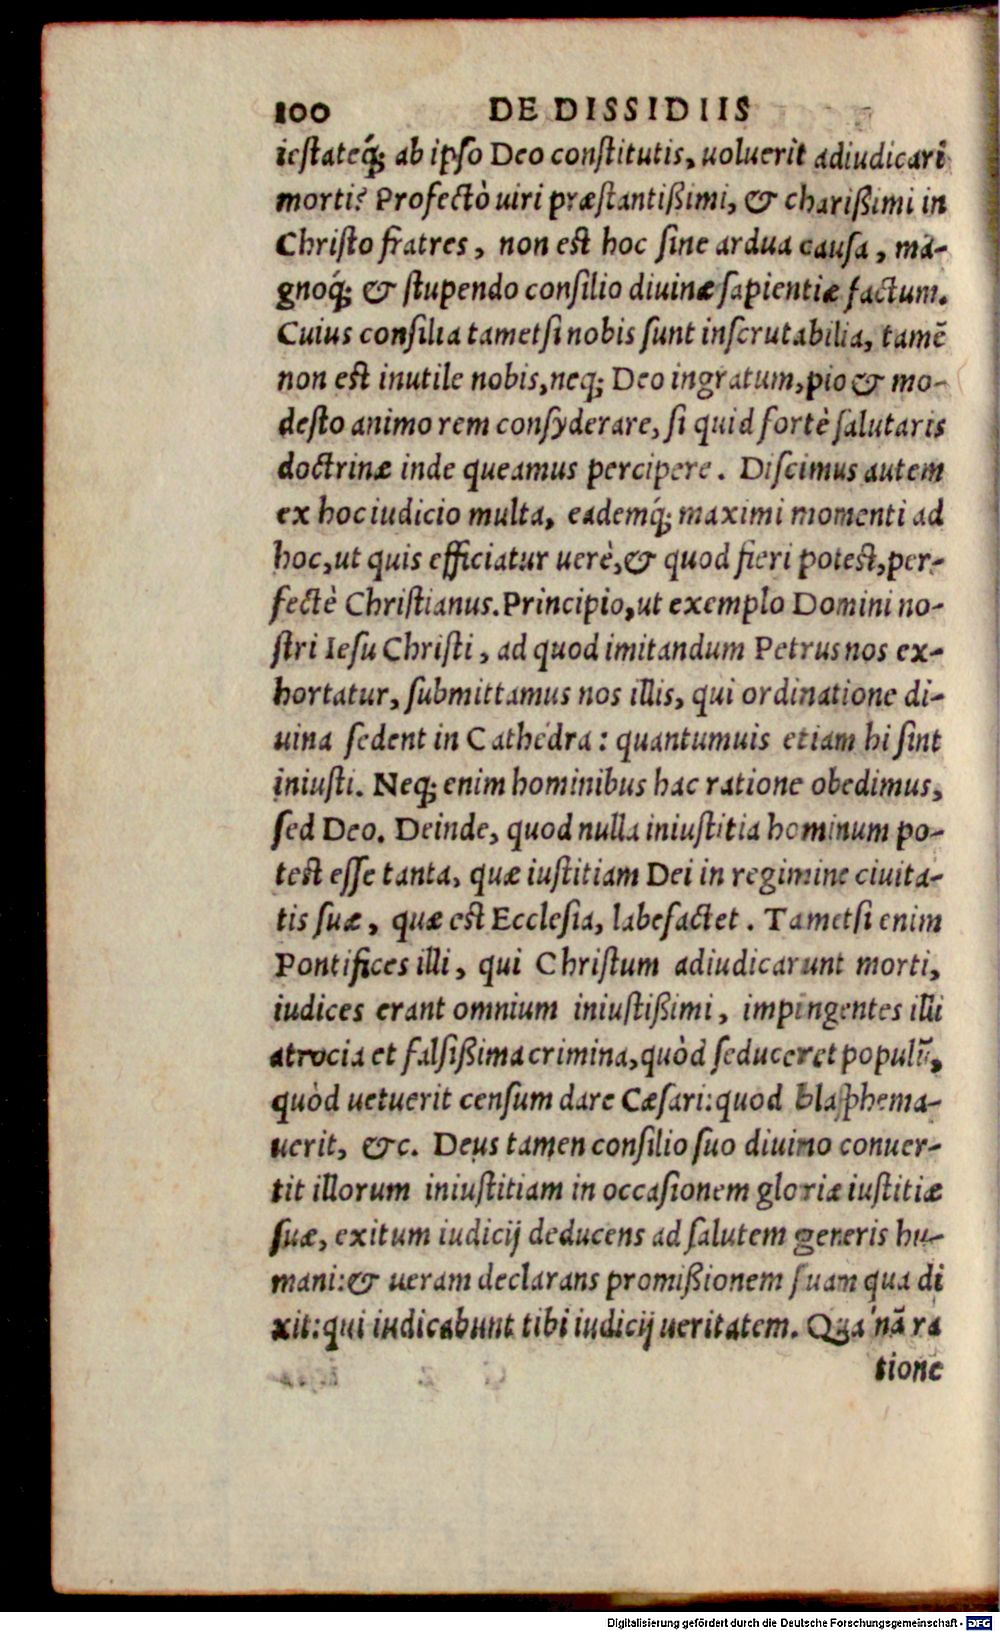 100 DE DISSIDIIS
iestateq́; ab ipso Deo constitutis, uoluerit adiudicari
morti? Profectò uiri præstantißimi, & charißimi in
Christo fratres, non est hoc sine ardua causa, ma-
gnoq́; & stupendo consilio diuinæ sapientiæ factum.
Cuius consilia tametsi nobis sunt inscrutabilia, tamẽ
non est inutile nobis, neq; Deo ingratum, pio & mo-
desto animo rem consyderare, si quid fortè salutaris
doctrinæ inde queamus percipere. Discimus autem
ex hoc iudicio multa, eademq́; maximi momenti ad
hoc, ut quis efficiatur uerè, & quod fieri potest, per-
fectè Christianus. Principio, ut exemplo Domini no-
stri Iesu Christi, ad quod imitandum Petrus nos ex-
hortatur, submittamus nos illis, qui ordinatione di-
uina sedent in Cathedra: quantumuis etiam hi sint
iniusti. Neq; enim hominibus hac ratione obedimus,
sed Deo. Deinde, quod nulla iniustitia hominum po-
test esse tanta, quæ iustitiam Dei in regimine ciuita-
tis suæ, quæ est Ecclesia, labefactet. Tametsi enim
Pontifices illi, qui Christum adiudicarunt morti,
iudices erant omnium iniustißimi, impingentes illi
atrocia et falsißima crimina, quòd seduceret populũ,
quòd uetuerit censum dare Cæsari: quod blasphema-
uerit, &c. Deus tamen consilio suo diuino conuer-
tit illorum iniustitiam in occasionem gloriæ iustitiæ
suæ, exitum iudicij deducens ad salutem generis hu-
mani: & ueram declarans promißionem suam qua di
xit: qui iudicabunt tibi iudicij ueritatem. Qua nã ra
tione
Digitalisierung gefördert durch die Deutsche Forschungsgemeinschaft - DFG